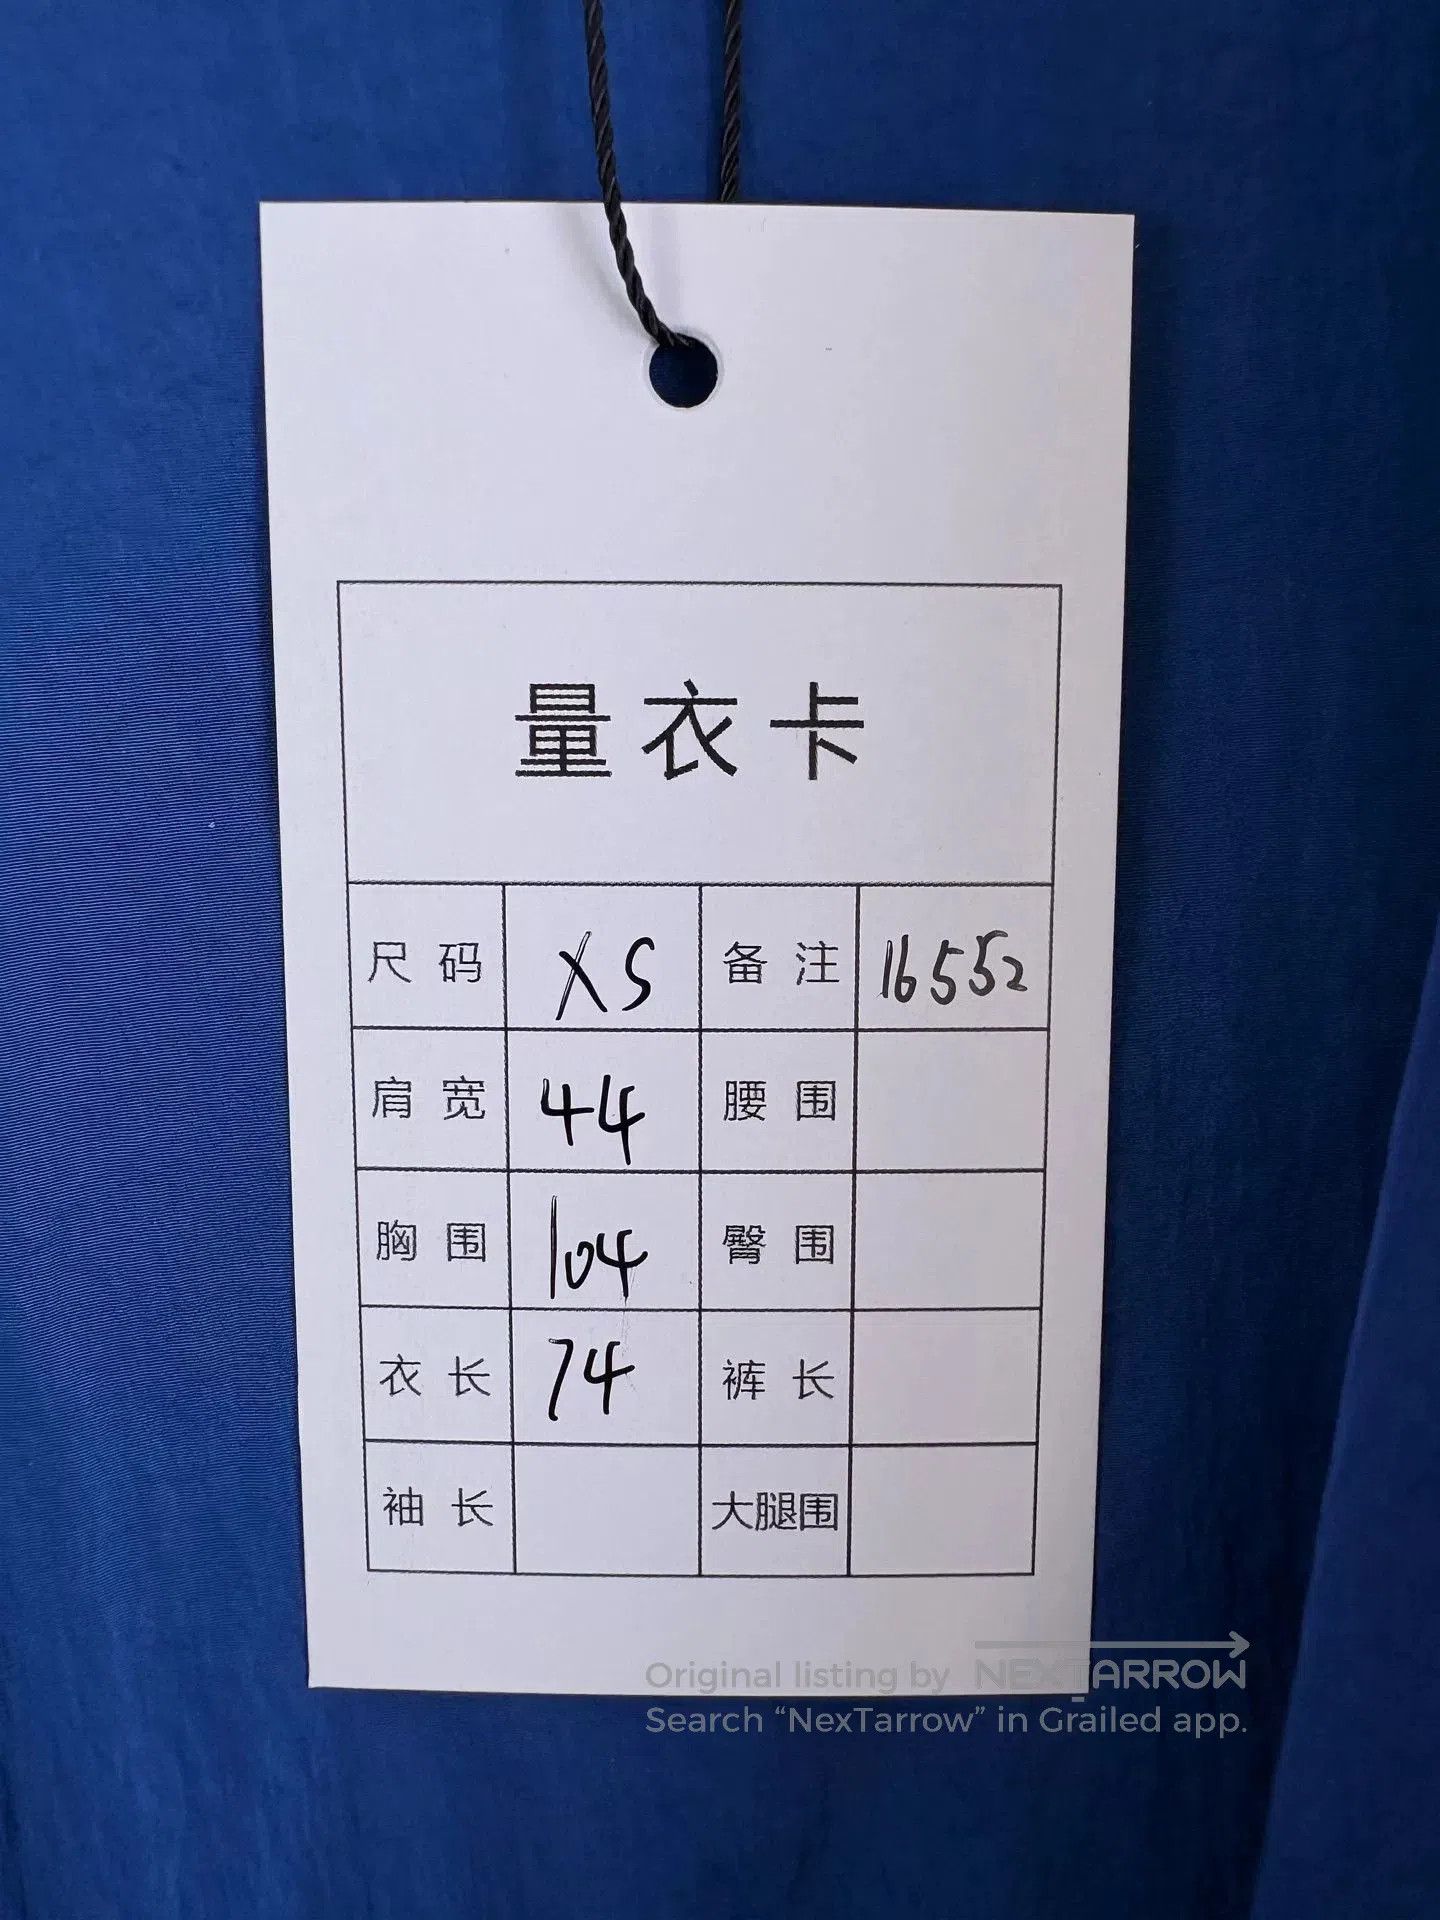 量衣卡
尺码 XS 备注 16552
肩宽 44 腰围
胸围 104 臀围
衣长 74 裤长
袖长 大腿围
Original listing by NEXTARROW
Search “NexTarrow” in Grailed app.